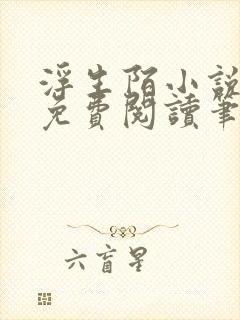 浮生陌小說
免費閱讀筆
六盲星